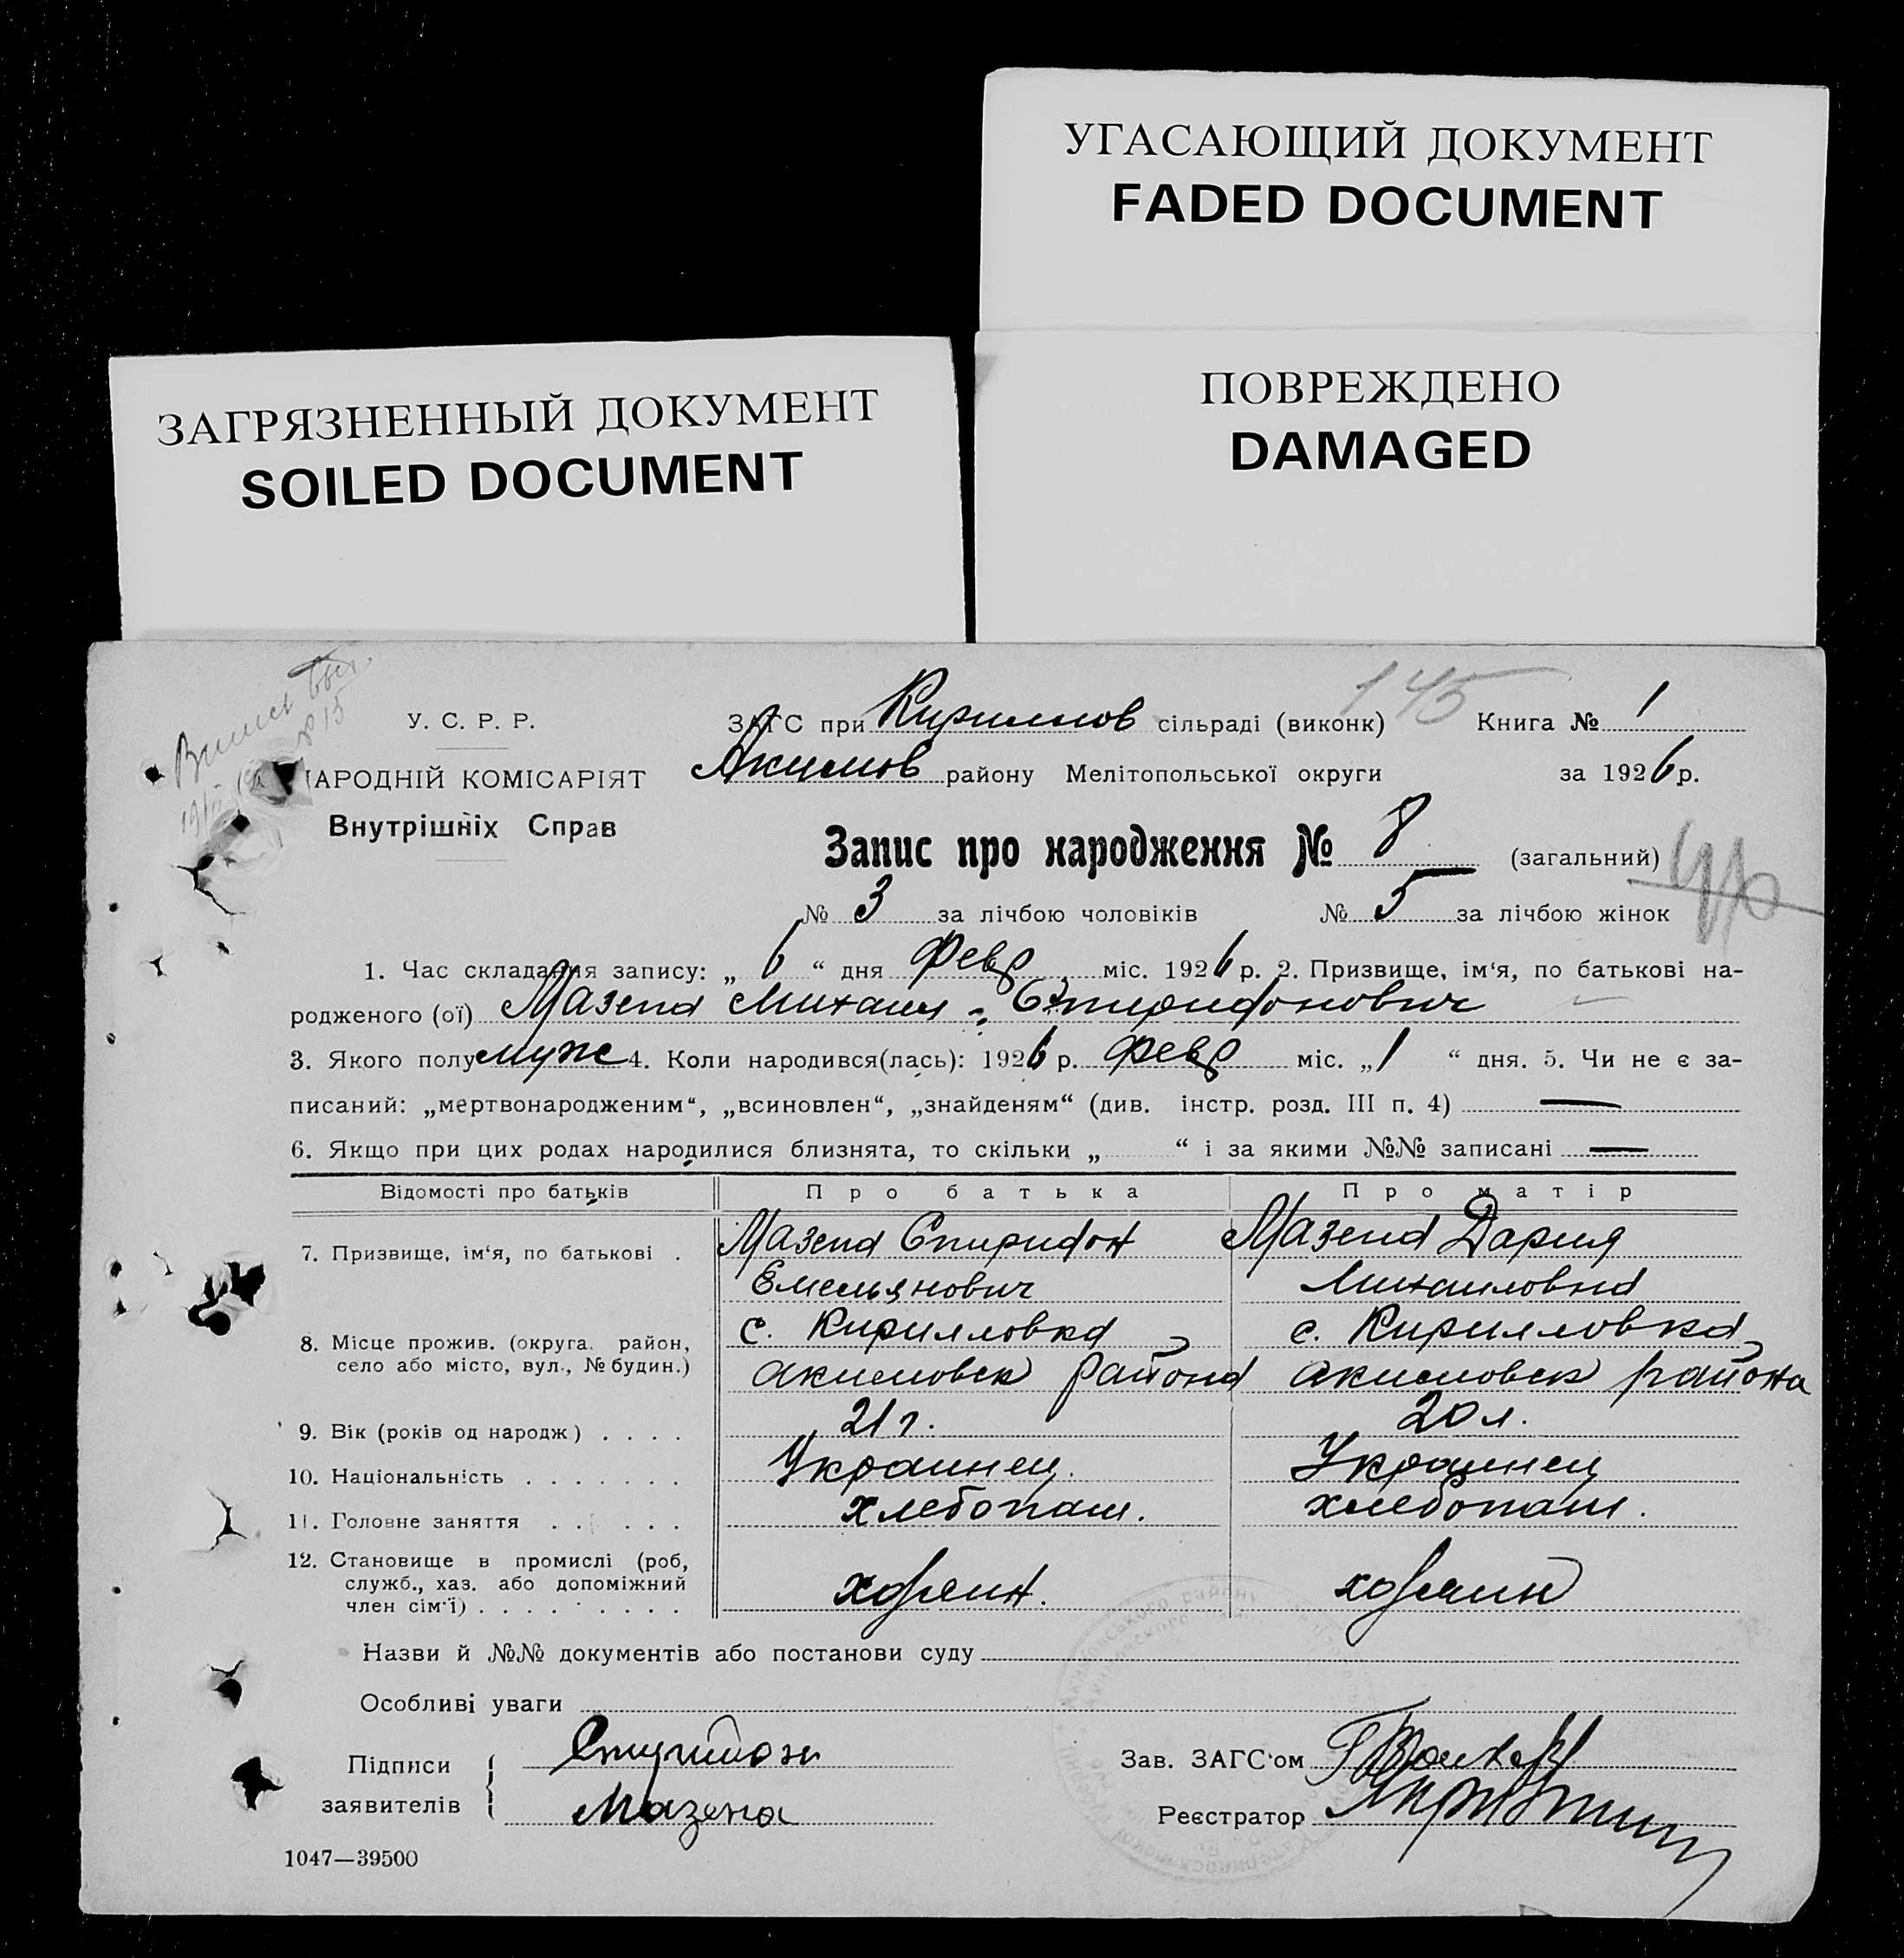 УГАСАЮЩИЙ ДОКУМЕНТ
FADED DOCUMENT
ЗАГРЯЗНЕННЫЙ ДОКУМЕНТ
SOILED DOCUMENT
ПОВРЕЖДЕНО
DAMAGED
145
У. С. Р. Р.
НАРОДНІЙ КОМІСАРІЯТ
Внутрішніх Справ
ЗАГС при Кириллов сільраді (виконк) Книга № 1
Акимов району Мелітопольської округи за 1926 р.
Запис про народження № 8 (загальний)
№ 3 за лічбою чоловіків № 5 за лічбою жінок
1. Час складання запису: „ 6 “ дня Февр міс. 1926 р. 2. Призвище, ім‘я, по батькові на-
родженого (ої) Мазепа Михаил Спиридонович
3. Якого полу муж 4. Коли народився(лась): 1926 р. Февр міс. „ 1 “ дня. 5. Чи не є за-
писаний: „мертвонародженим“, „всиновлен“, „знайденям“ (див. інстр. розд. III п. 4) —
6. Якщо при цих родах народилися близнята, то скільки „ “ і за якими №№ записані —
Відомості про батьків Про батька Про матір
7. Призвище, ім‘я, по батькові . Мазепа Спиридон Мазепа Дария
Емельянович Михаиловна
8. Місце прожив. (округа. район, с. Кирилловка с. Кирилловка
село або місто, вул., № будин.) Акимовск района Акимовск района
9. Вік (років од народж) . . . . 21 г. 20 л.
10. Національність . . . . . . . Украинец. Украинец
11. Головне заняття . . . . . . хлебопаш. хлебопаш.
12. Становище в промислі (роб,
служб., хаз. або допоміжний хозяин. хозяин
член сім‘ї) . . . . . . . . .
Назви й №№ документів або постанови суду
Особливі уваги
Підписи Спиридон Зав. ЗАГС‘ом
заявителів Мазепа Реєстратор
1047—39500